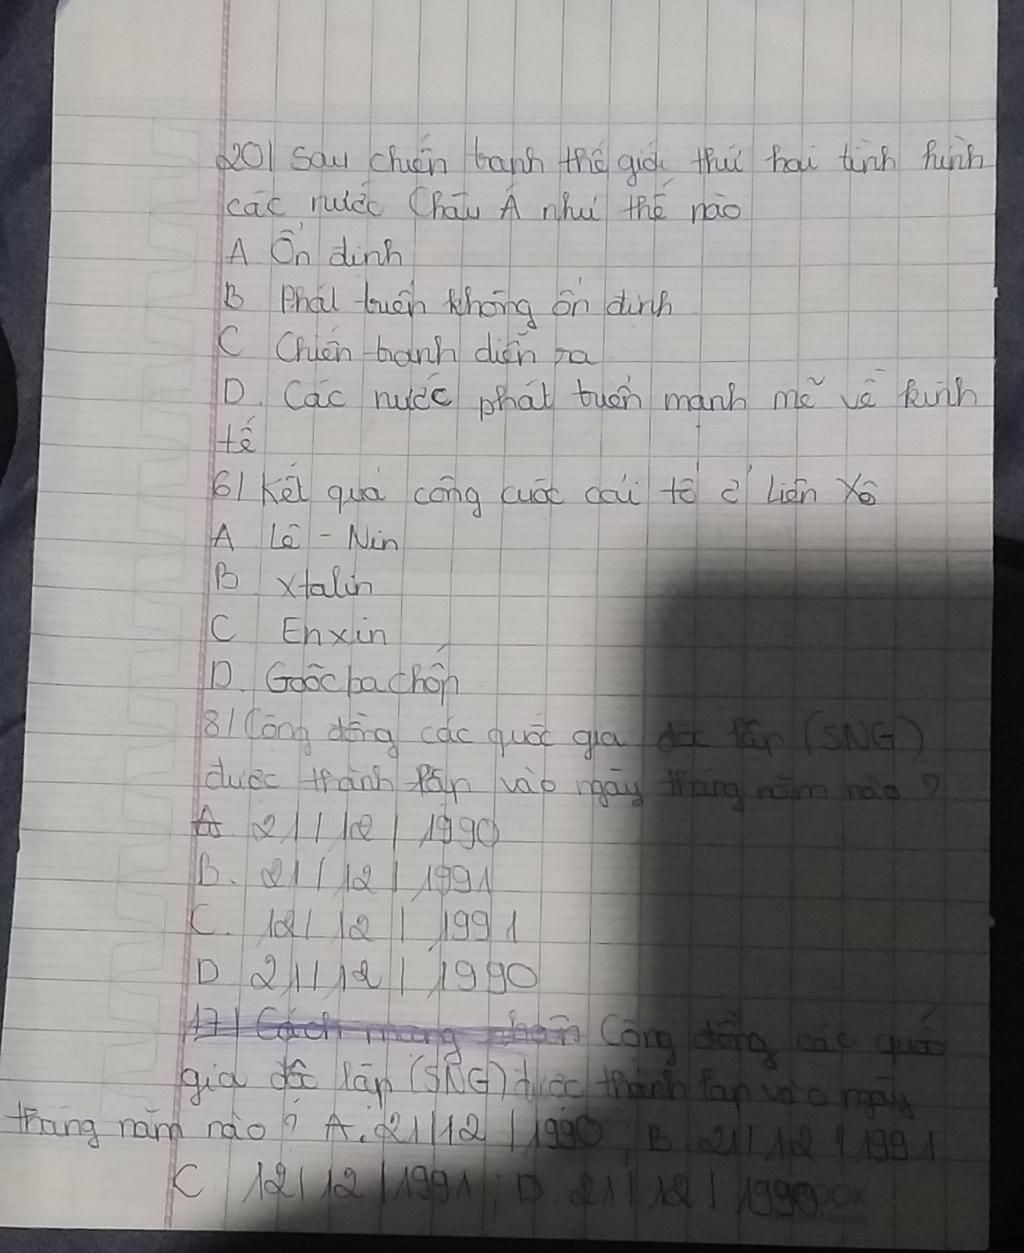 20/ Sau chiến tranh thế giới thứ hai tình hình
các nước Châu Á như thế nào
A Ổn định
B Phát triển không ổn định
C Chiến tranh diễn ra
D. Các nước phát triển mạnh mẽ về kinh
tế
6/ Kết quả công cuộc cải tổ ở Liên Xô
A Lê - Nin
B Xtalin
C Enxin
D. Goócbachốp
8/ Cộng đồng các quốc gia độc lập (SNG)
được thành lập vào ngày tháng năm nào ?
A 21/12/1990
B. 21/12/1991
C. 12/12/1991
D 21/12/1990
17/ Cách mạng Cộng đồng các quốc
gia độc lập (SNG) được thành lập vào ngày
tháng năm nào ? A. 21/12/1990, B 21/12/1991
C 12/12/1991; D 21/12/1990